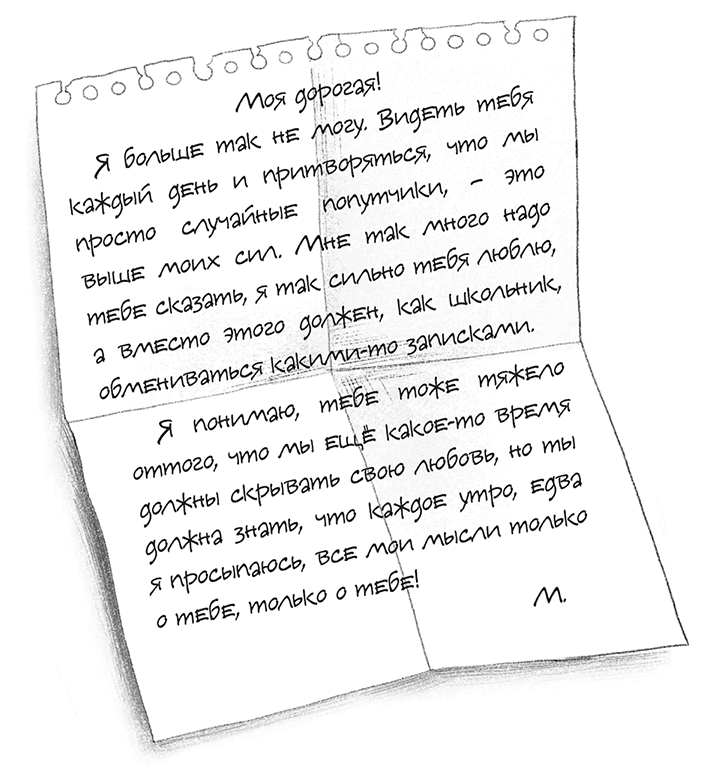 Моя дорогая!
Я больше так не могу. Видеть тебя
каждый день и притворяться, что мы
просто случайные попутчики, – это
выше моих сил. Мне так много надо
тебе сказать, я так сильно тебя люблю,
а вместо этого должен, как школьник,
обмениваться какими-то записками.
Я понимаю, тебе тоже тяжело
оттого, что мы ещё какое-то время
должны скрывать свою любовь, но ты
должна знать, что каждое утро, едва
я просыпаюсь, все мои мысли только
о тебе, только о тебе!
М.